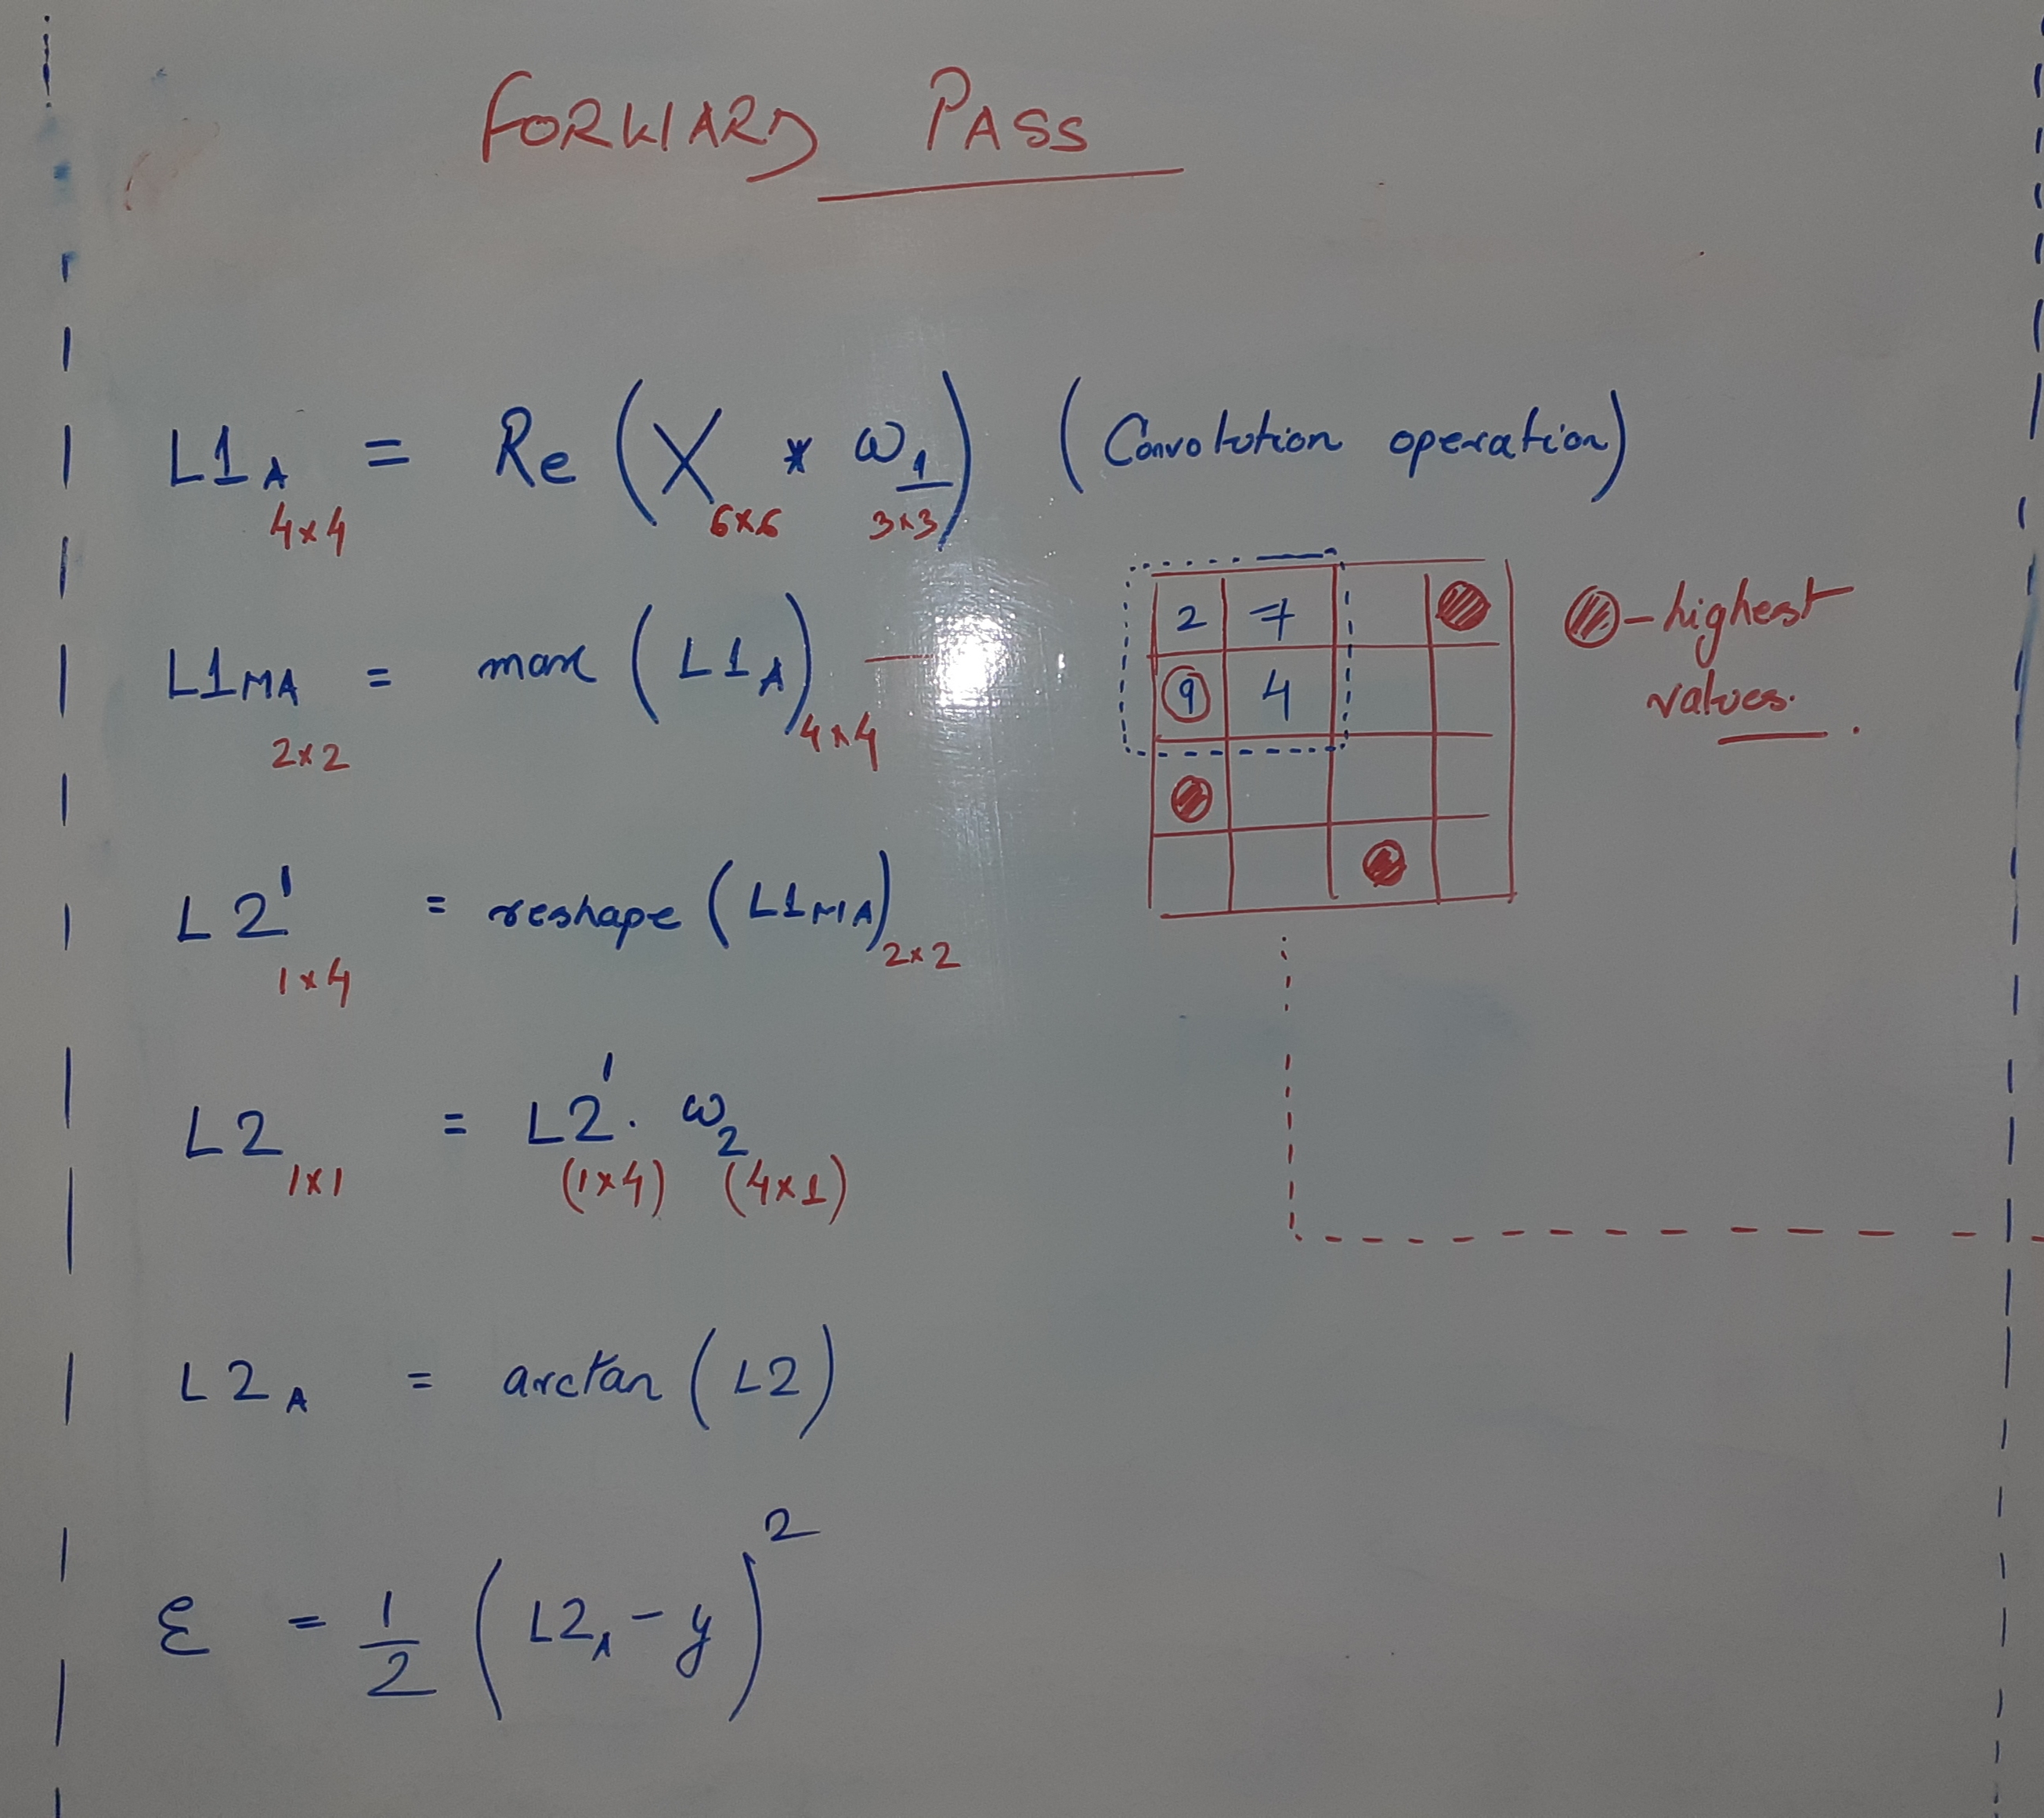 FORWARD PASS
L1A 4×4 = Re (X 6×6 * ω1 3×3) (Convolution operation)
L1MA 2×2 = max (L1A) 4×4
2 7
9 4
- highest
values.
L2' 1×4 = reshape (L1MA) 2×2
L2 1×1 = L2' . ω2
(1×4) (4×1)
L2A = arctan (L2)
ε = 1/2 (L2A - y)²